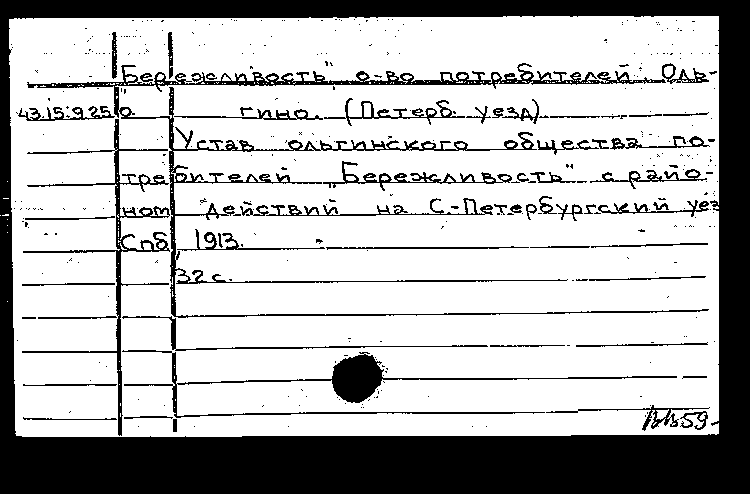 "Бережливость", о-во потребителей. Оль-
43.15:9.25 о. гино. (Петерб. уезд)
Устав ольгинского общества по-
требителей "Бережливость" с райо-
ном действий на С.-Петербургский уез
Спб, 1913.
32 с.
59